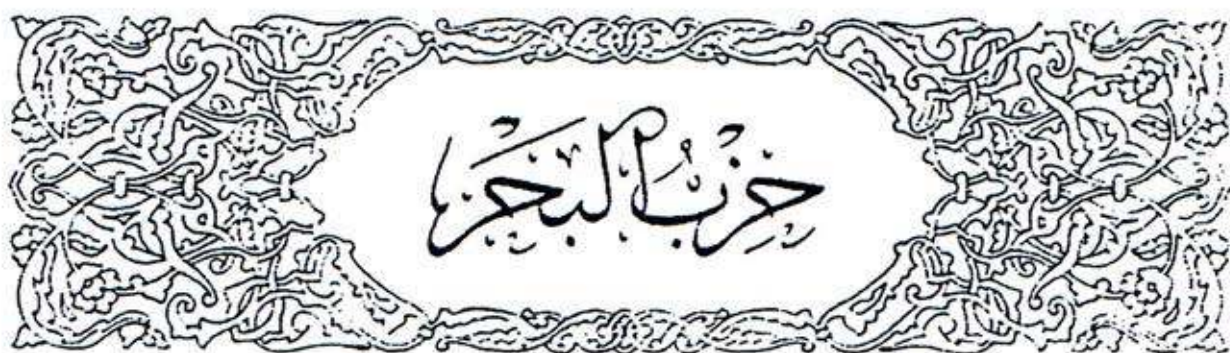 حزب البحر